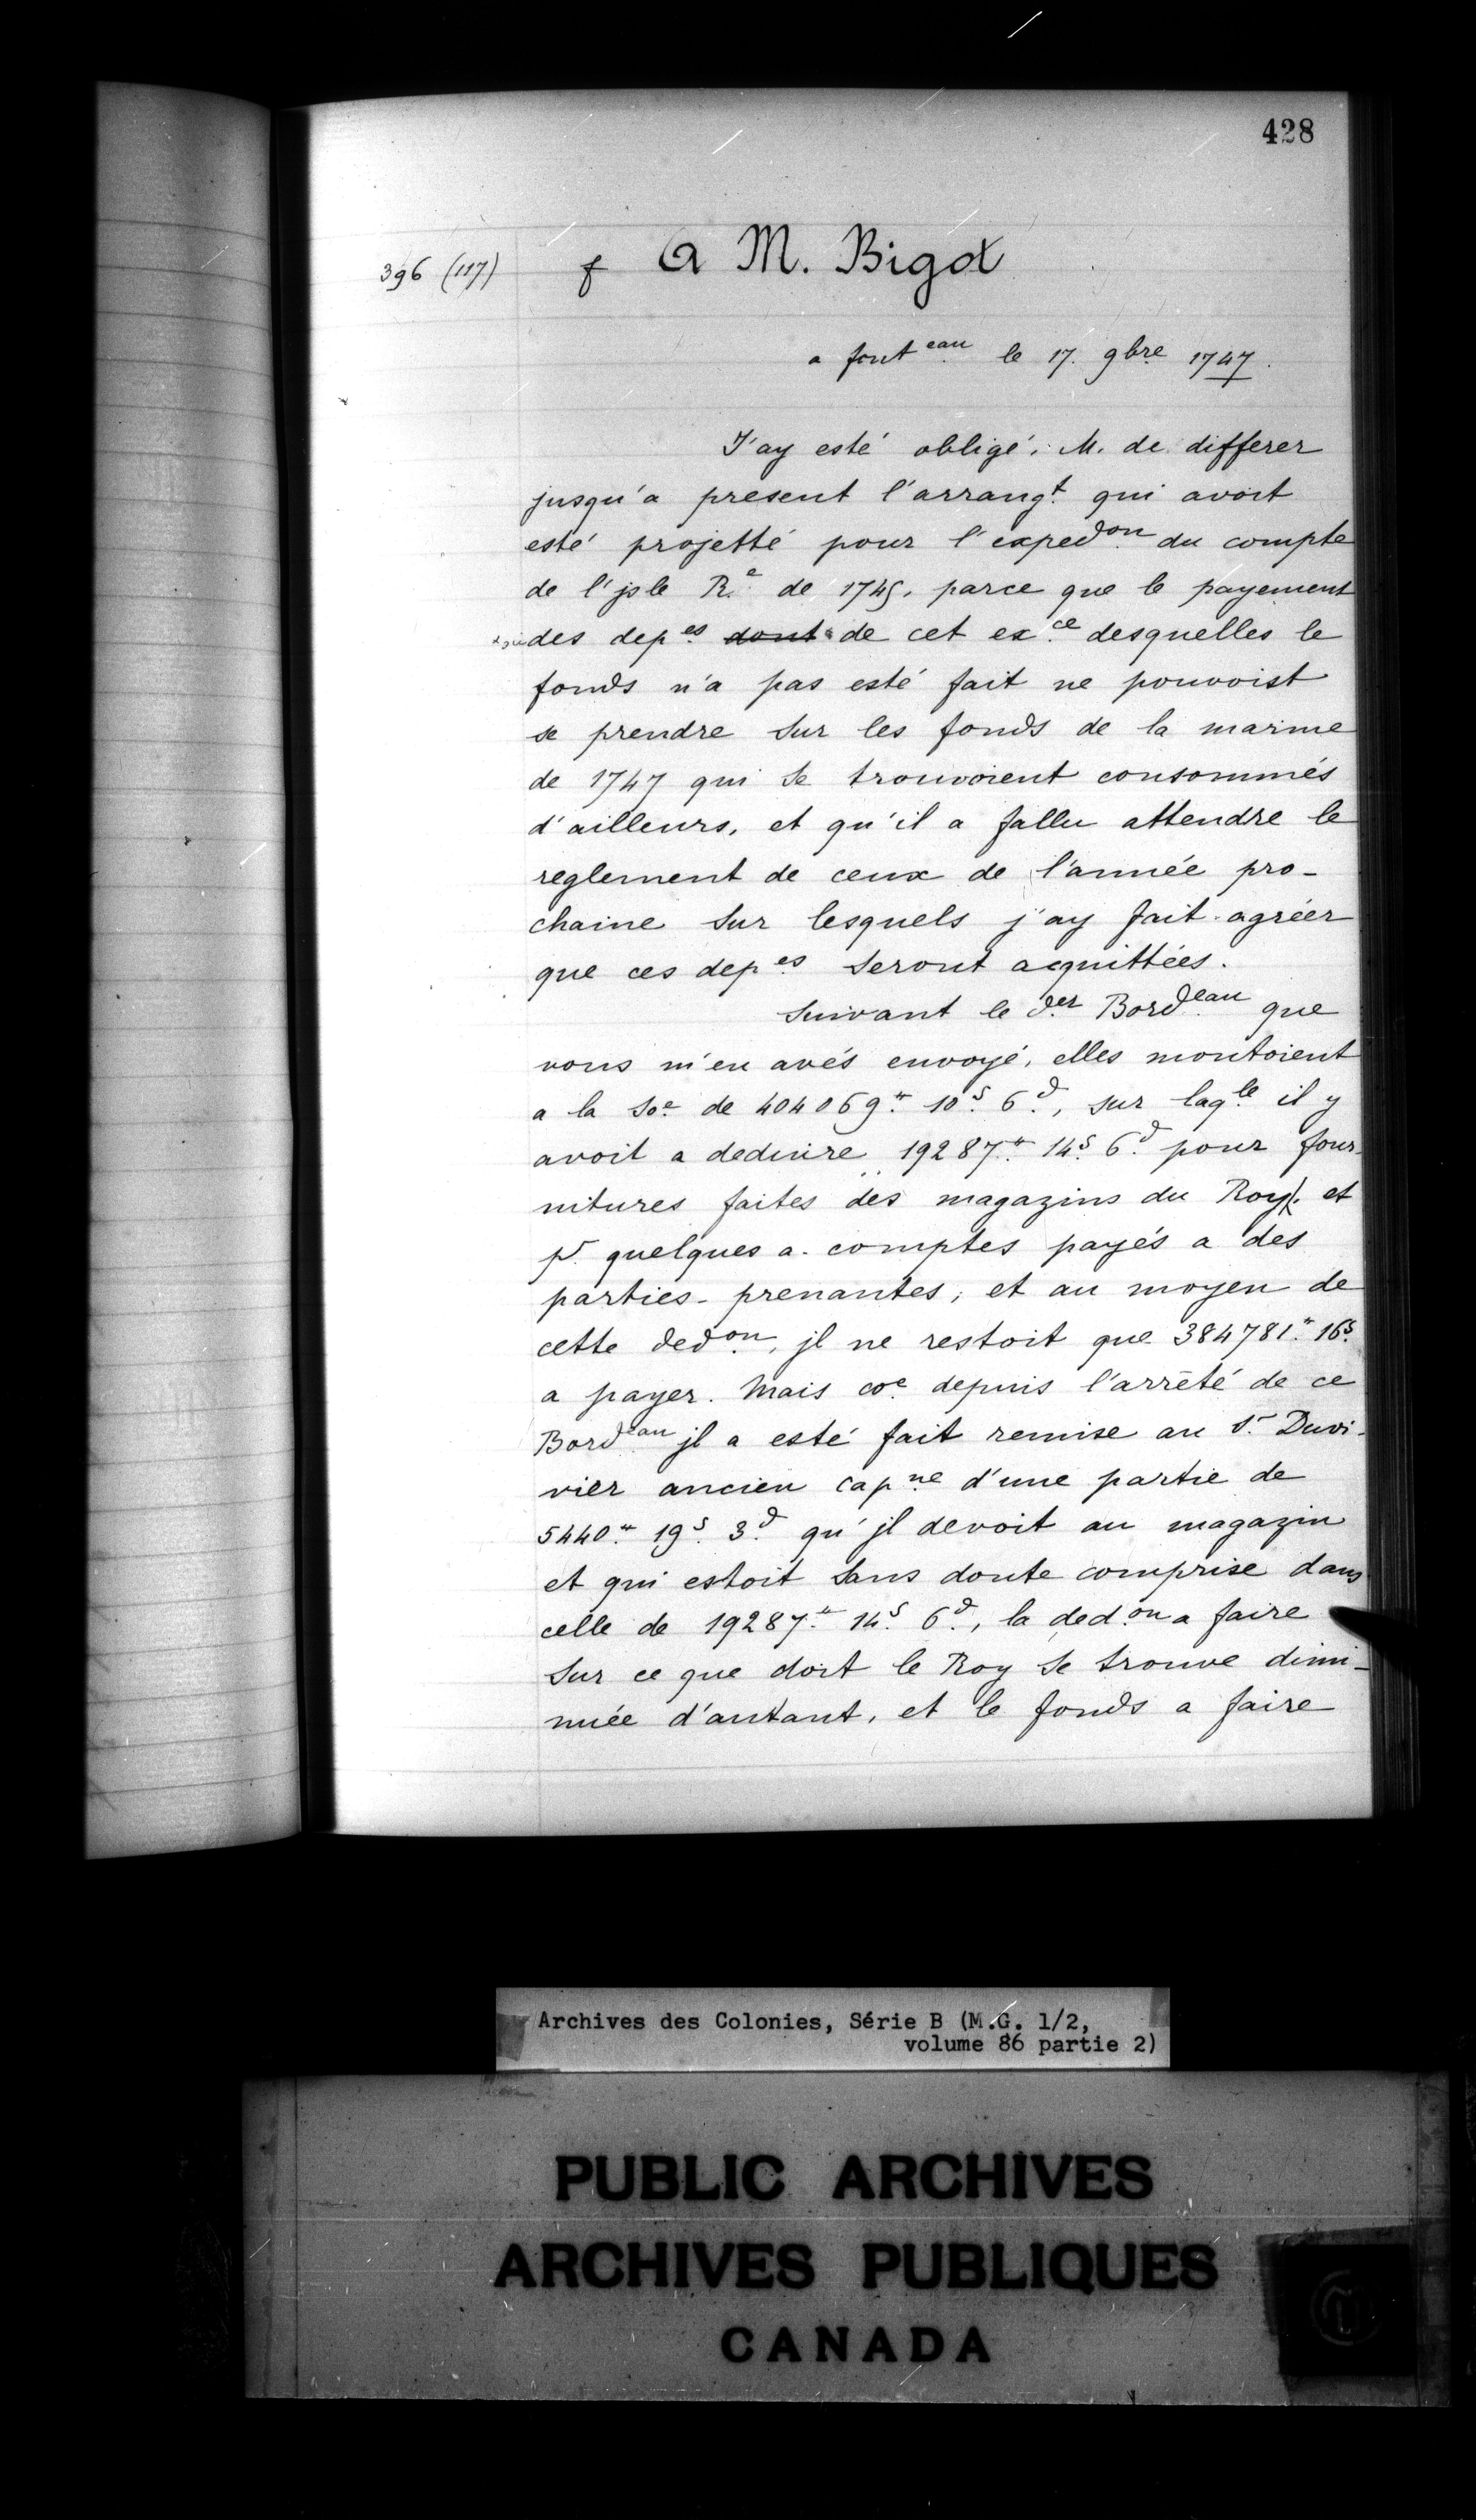 428
396 (117) f A M. Bigot
a font eau le 17. 9bre 1747.
J'ay esté obligé, M. de differer
jusqu'a present l'arrangt. qui avoit
esté projetté pour l'expedon du compte
de l'jsle Re. de 1745. parce que le payement
des depes dont de cet exce desquelles le
fonds n'a pas esté fait ne pouvoist
se prendre sur les fonds de la marine
de 1747 qui se trouvoient consommés
d'ailleurs, et qu'il a fallu attendre le
reglement de ceux de l'année pro-
chaine sur lesquels j'ay fait agréer
que ces depes seront acquittées.
Suivant le der Bordeau que
vous m'en avés envoyé, elles montoient
a la soe de 404069# 10s. 6d., sur laqle il y
avoit a deduire 19287# 14s. 6d. pour four-
nitures faites des magazins du Roy, et
pr. quelques a-comptes payés a des
parties-prenantes, et au moyen de
cette dedon, jl ne restoit que 384781# 16s.
a payer. Mais coe depuis l'arrêté de ce
Bordeau jl a esté fait remise au Sr. Duvi-
vier ancien capne d'une partie de
5440# 19s. 3d. qu'jl devoit au magazin
et qui estoit sans doute comprise dans
celle de 19287# 14s. 6d., la dedon a faire
sur ce que doit le Roy se trouve dimi-
nuée d'autant, et le fonds a faire
Archives des Colonies, Série B (M.G. 1/2,
volume 86 partie 2)
PUBLIC ARCHIVES
ARCHIVES PUBLIQUES
CANADA